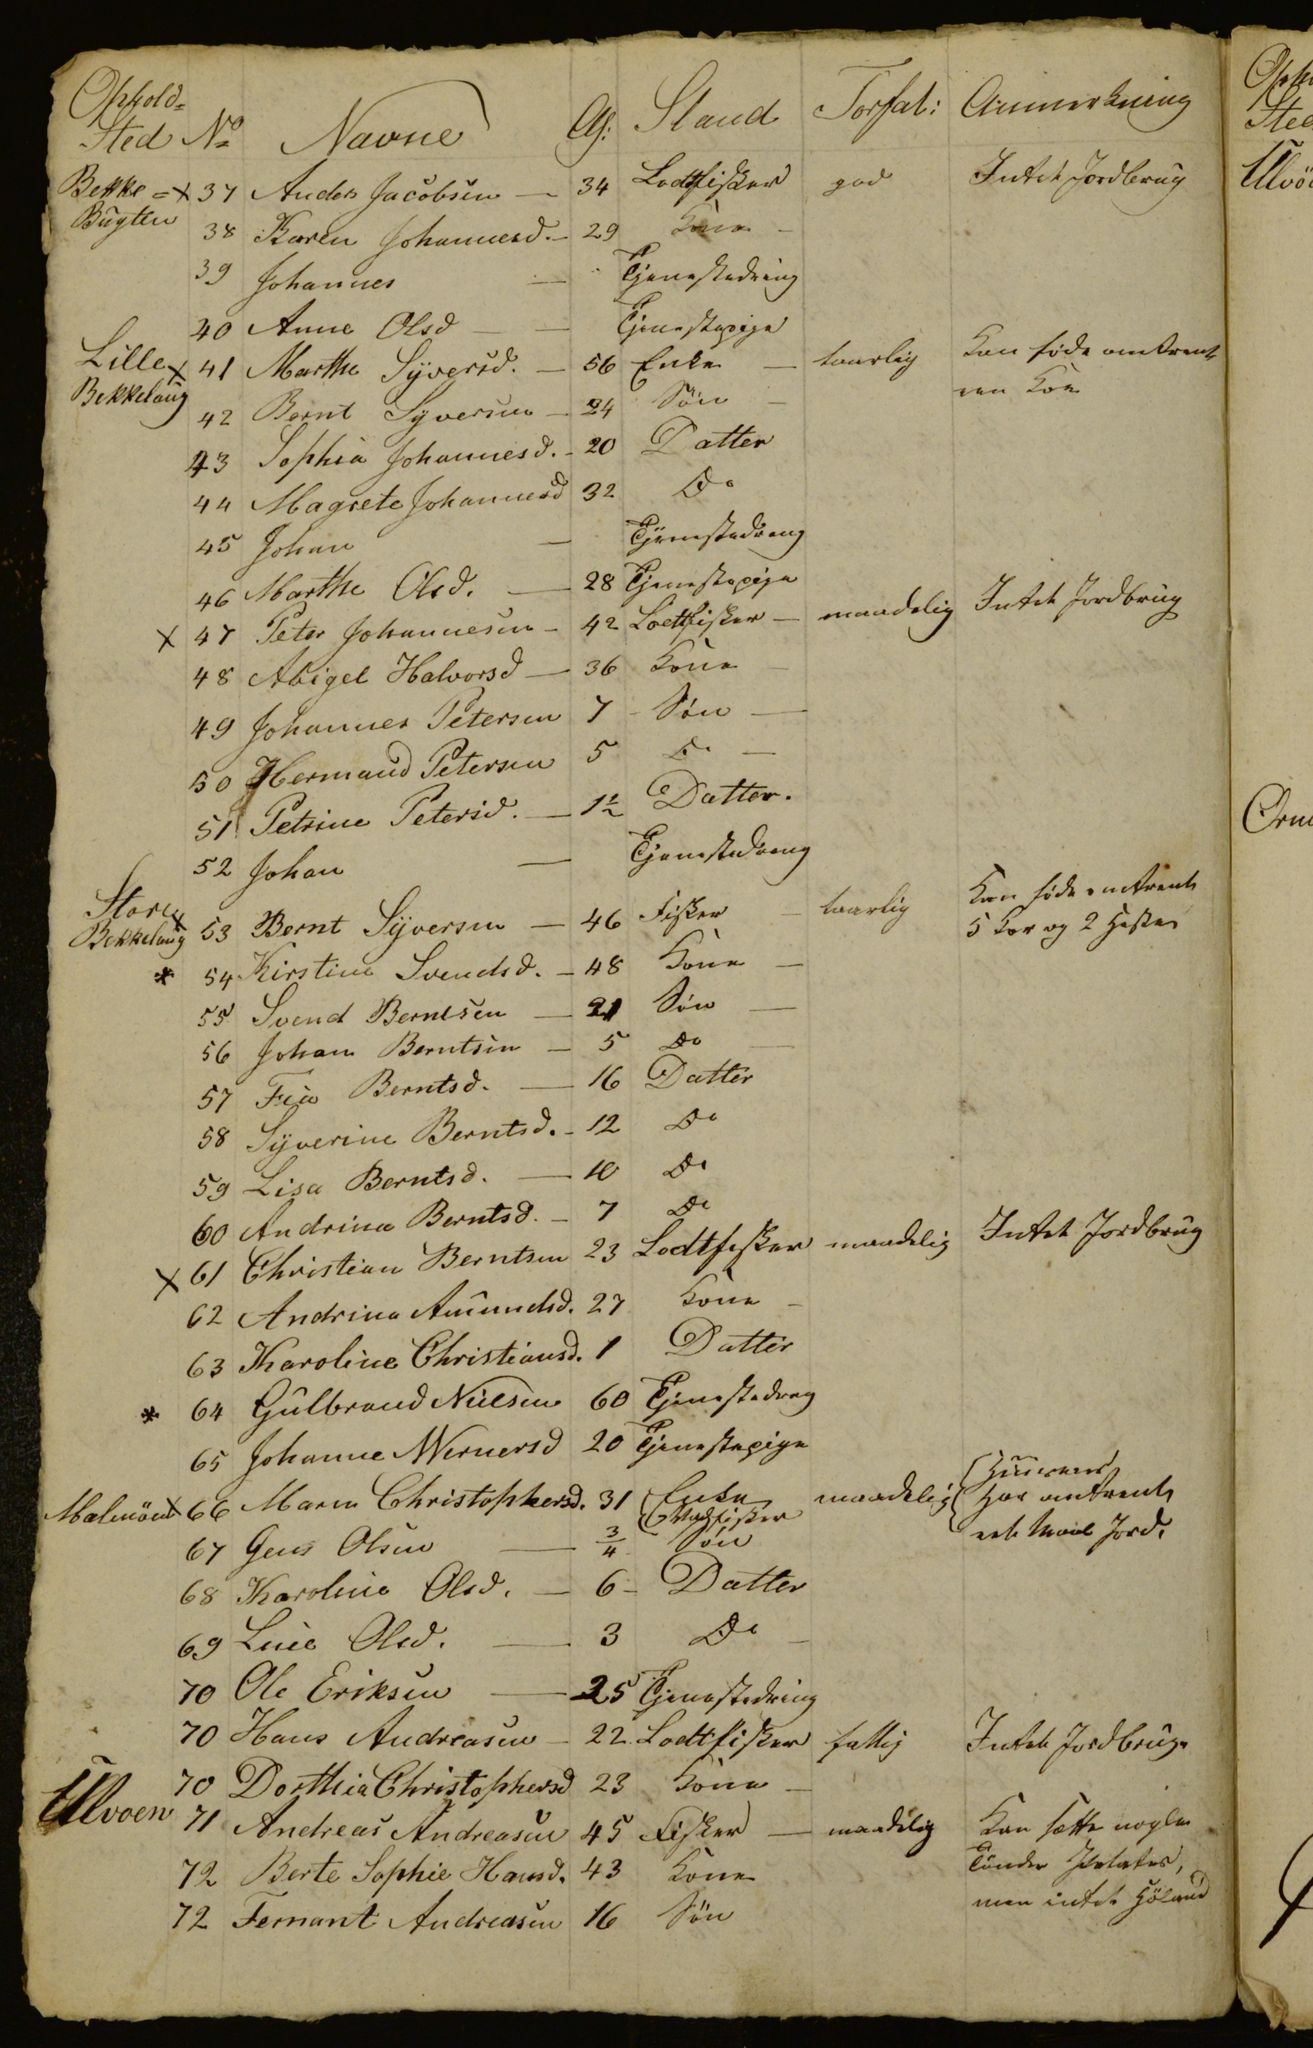 Ophold=
Sted No Navne Al: Stand Forfat: Anmerkning
Bekke= x 37 Anders Jacobsen — 34 Lodtfisker god Intet Jordbrug
Bugten 38 Karen Johannesd. — 29 Kone —
39 Johannes — Tjenestedreng
40 Anne Olsd — — Tjenestepige
Lille x 41 Marthe Syversd. — 56 Enke — taarlig Kan føde omtrent
Bekkelaug 42 Bernt Syversen — 24 Søn — een Koe
43 Sophia Johannesd. - 20 Datter
44 Magrete Johannesd 32 Do
45 Johan — Tjenestedreng
46 Marthe Olsd. — 28 Tjenestepige
x 47 Peter Johannesen - 42 Lodtfisker — maadelig Intet Jordbrug
48 Abigel Halvorsd — 36 Kone —
49 Johannes Petersen 7 - Søn —
50 Hermand Petersen 5 Do —
51 Petrine Petersd. — 1½ Datter.
52 Johan — Tjenestedreng
Store x
Bekkelaug 53 Bernt Syversen — 46 Fisker — taarlig Kan føde omtrent
5 Kør og 2 Heste
* 54 Kirstine Svendsd. — 48 Kone —
55 Svend Berntsen — 21 Søn —
56 Johan Berntsen — 5 Do —
57 Berntsd. — 16 Datter
58 Syverine Berntsd. - 12 Do
59 Lisa Berntsd. — 10 Do
60 Andrina Berntsd. — 7 Do
x 61 Christian Berntsen 23 Lodtfisker maadelig Intet Jordbrug
62 Andrina Amundsd. 27 Kone —
63 Karoline Christiansd. 1 Datter
* 64 Gulbrand Nielsen 60 Tjenestedreng
65 Johanne Wernersd 20 Tjenestepige
Malmöen x 66 Maren Christophersd. 31 Enke maadelig
har omtrent
67 Jens Olsen — ¾ Søn eet Maal Jord.
68 Karoline Olsd. — 6 - Datter
69 Olsd. — 3 Do —
70 Ole Eriksen — 25 Tjenestedreng
70 Hans Andreasen — 22 Lodtfisker fattig Intet Jordbrug.
70 Dorthia Christophersd 23 Kone —
Ulvøen 71 Andreas Andreasen 45 Fisker — maadelig Kan sætte nogle
72 Berte Sophie Hansd. 43 Kone Tønder Potates,
72 Fernant Andreasen 16 Søn men intet Høland
Ulvö